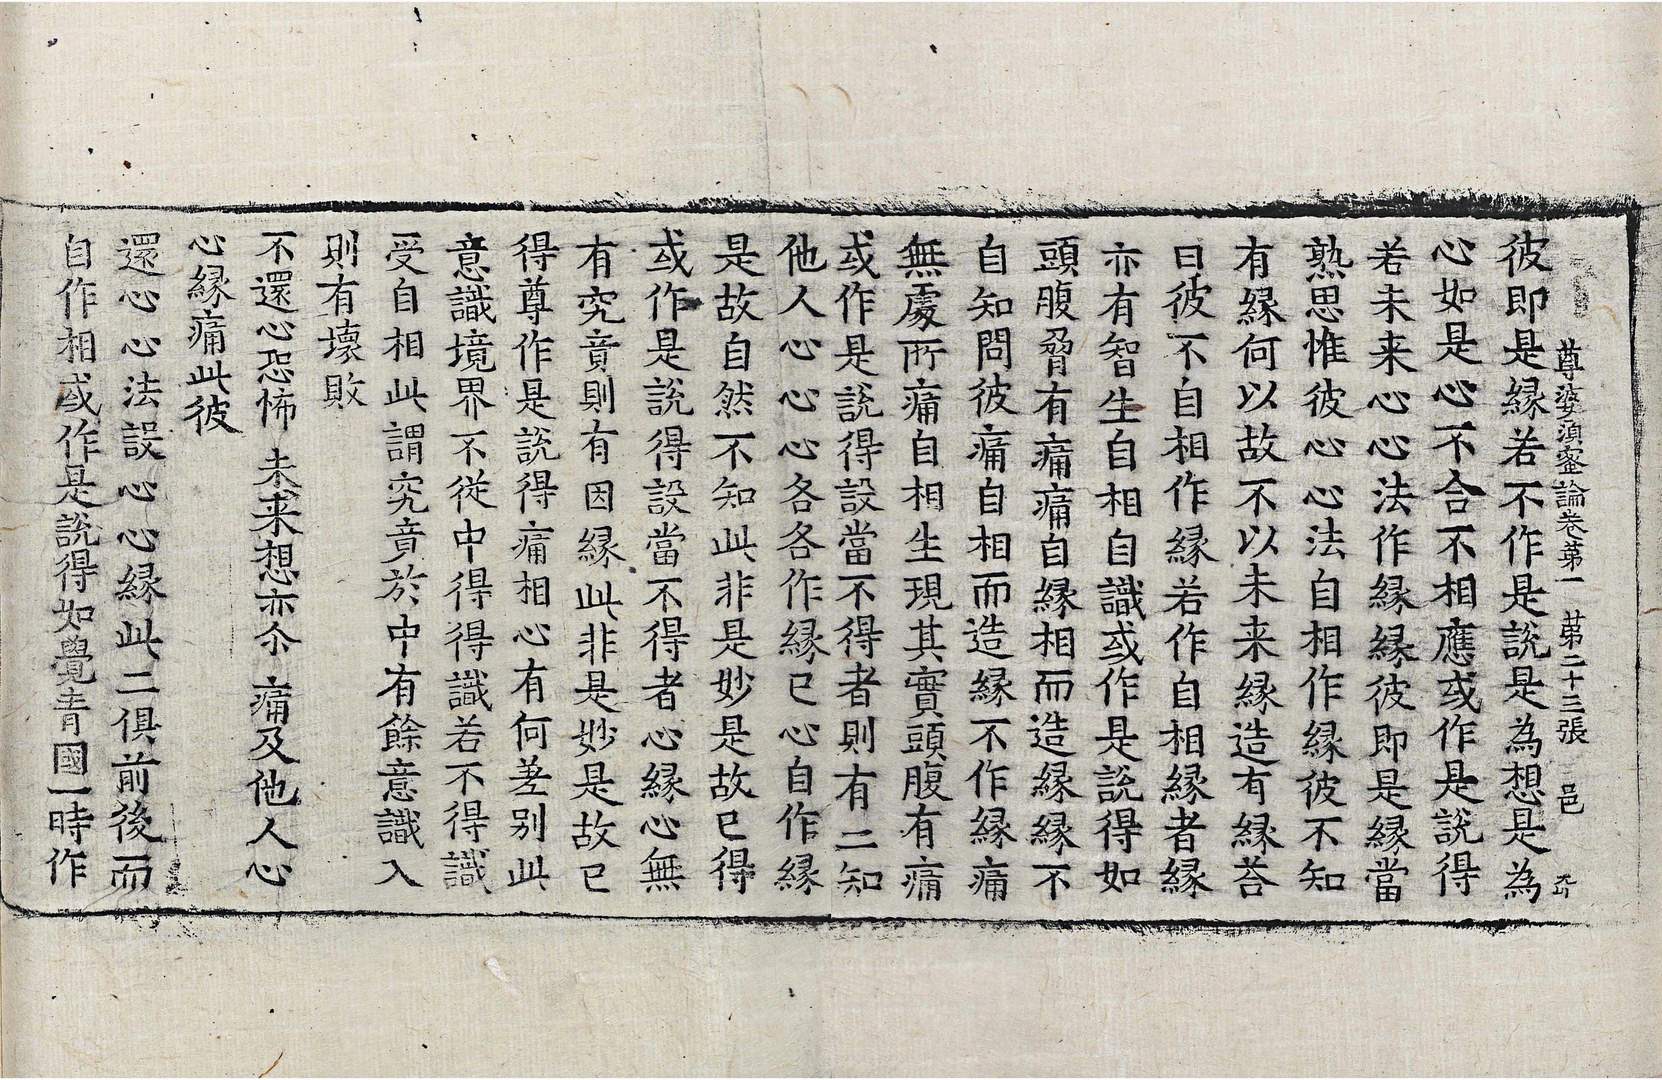 尊婆湏蜜論卷苐一 苐二十三張 邑
彼即是縁若不作是說是為想是為
心如是心不合不相應或作是說得
若未来心心法作縁縁彼即是縁當
熟思惟彼心心法自相作縁彼不知
有縁何以故不以未来縁造有縁荅
曰彼不自相作縁若作自相縁者縁
亦有智生自相自識或作是說得如
頭腹脅有痛痛自縁相而造縁縁不
自知問彼痛自相而造縁不作縁痛
無處所痛自相生現其實頭腹有痛
或作是說得設當不得者則有二知
他人心心心各各作縁已心自作縁
是故自然不知此非是妙是故已得
或作是說得設當不得者心縁心無
有究竟則有因縁此非是妙是故已
得尊作是說得痛相心有何差别此
意識境界不從中得得識若不得識
受自相此謂究竟於中有餘意識入
則有壞敗
不還心恐怖 未来想亦尒 痛及他人心
心縁痛此彼
還心心法設心心縁此二俱前後而
自作相或作是說得如覺青國一時作